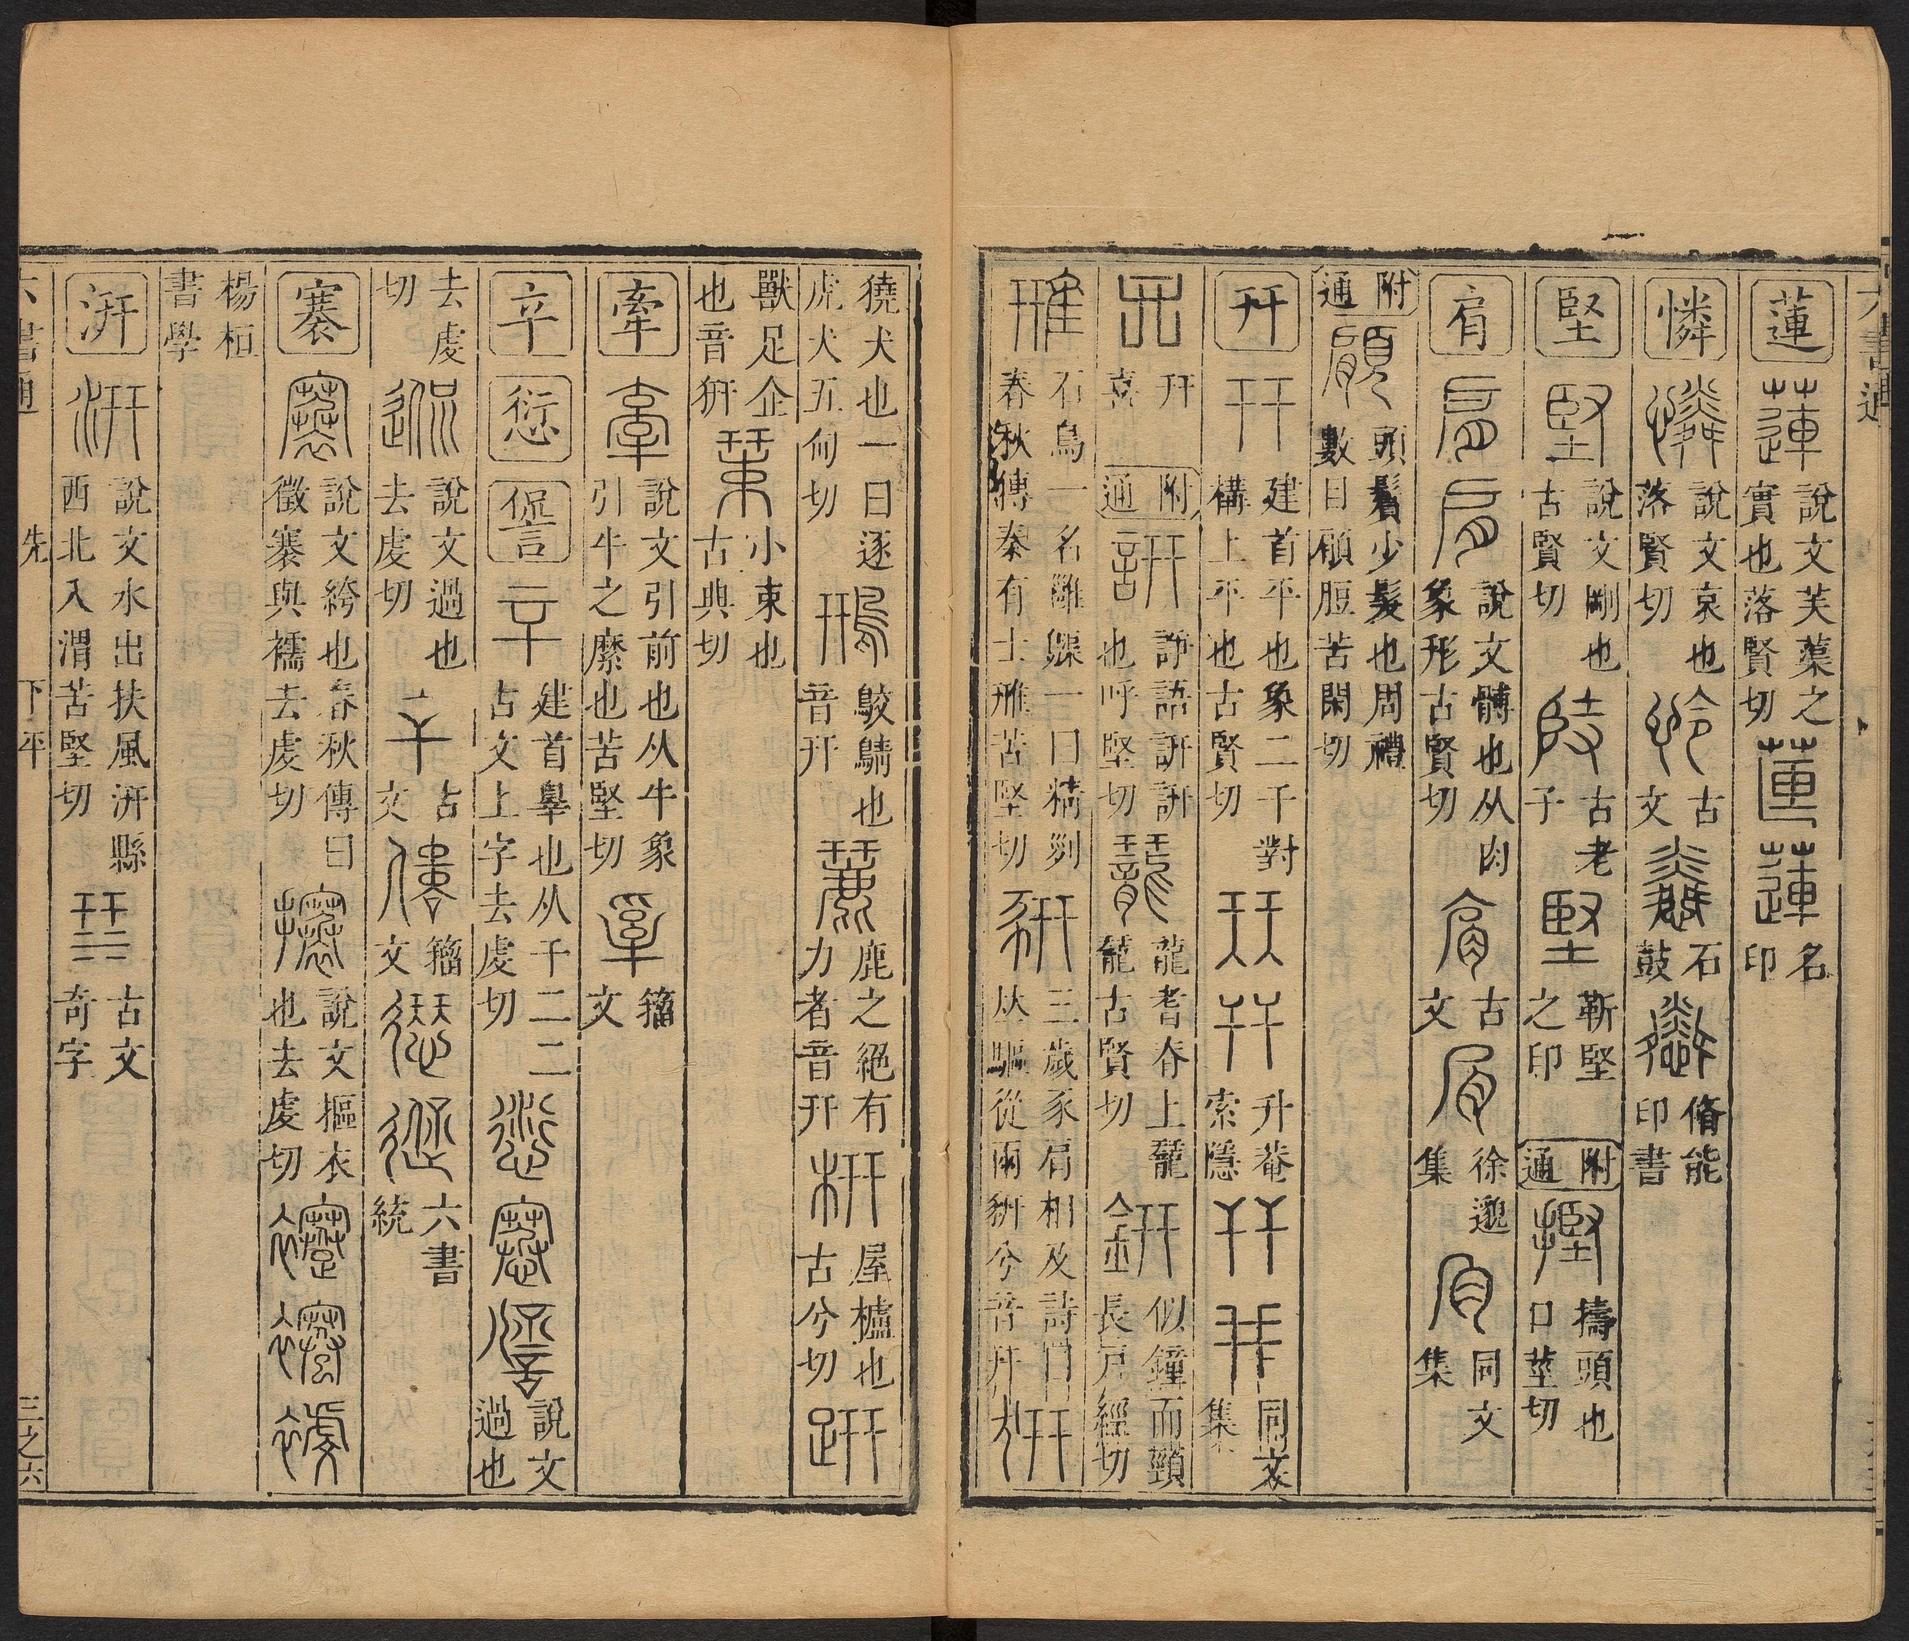 六書通
蓮 說文芙蕖之實也落賢切 名印
憐 說文哀也落賢切 古文 石鼓 脩能印書
堅 說文剛也古賢切 古老子 靳堅之印 附通 擣頭也口莖切
肩 說文髆也从肉象形古賢切 古文 徐邈集 同文集
附通 頭鬢少髮也周禮數目顅脰苦閑切
幵 建首平也象二干對構上平也古賢切 升菴索隱 同文集
幵喜 附通 諍語訮訮也呼堅切 龍耆脊上龖古賢切 似鐘而頸長戶經切
石鳥一名雝䳭一曰精列春秋傳秦有士雃苦堅切 三歲豕肩相及詩曰並驅從兩豜兮音幵
獟犬也一曰逐虎犬五甸切 鮫鶄也音幵 鹿之絕有力者音幵 屋櫨也古兮切
獸足企也音豣 小束也古典切
牽 說文引前也从牛象引牛之縻也苦堅切 籀文
䇂 愆 諐 建首辠也从干二二古文上字去虔切 說文過也
去虔切 說文過也去虔切 古文 籀文 六書統
褰 說文絝也春秋傳曰徵褰與襦去虔切 說文摳衣也去虔切
楊桓書學
汧 說文水出扶風汧縣西北入渭苦堅切 古文奇字
六書通 先 下平 三之六